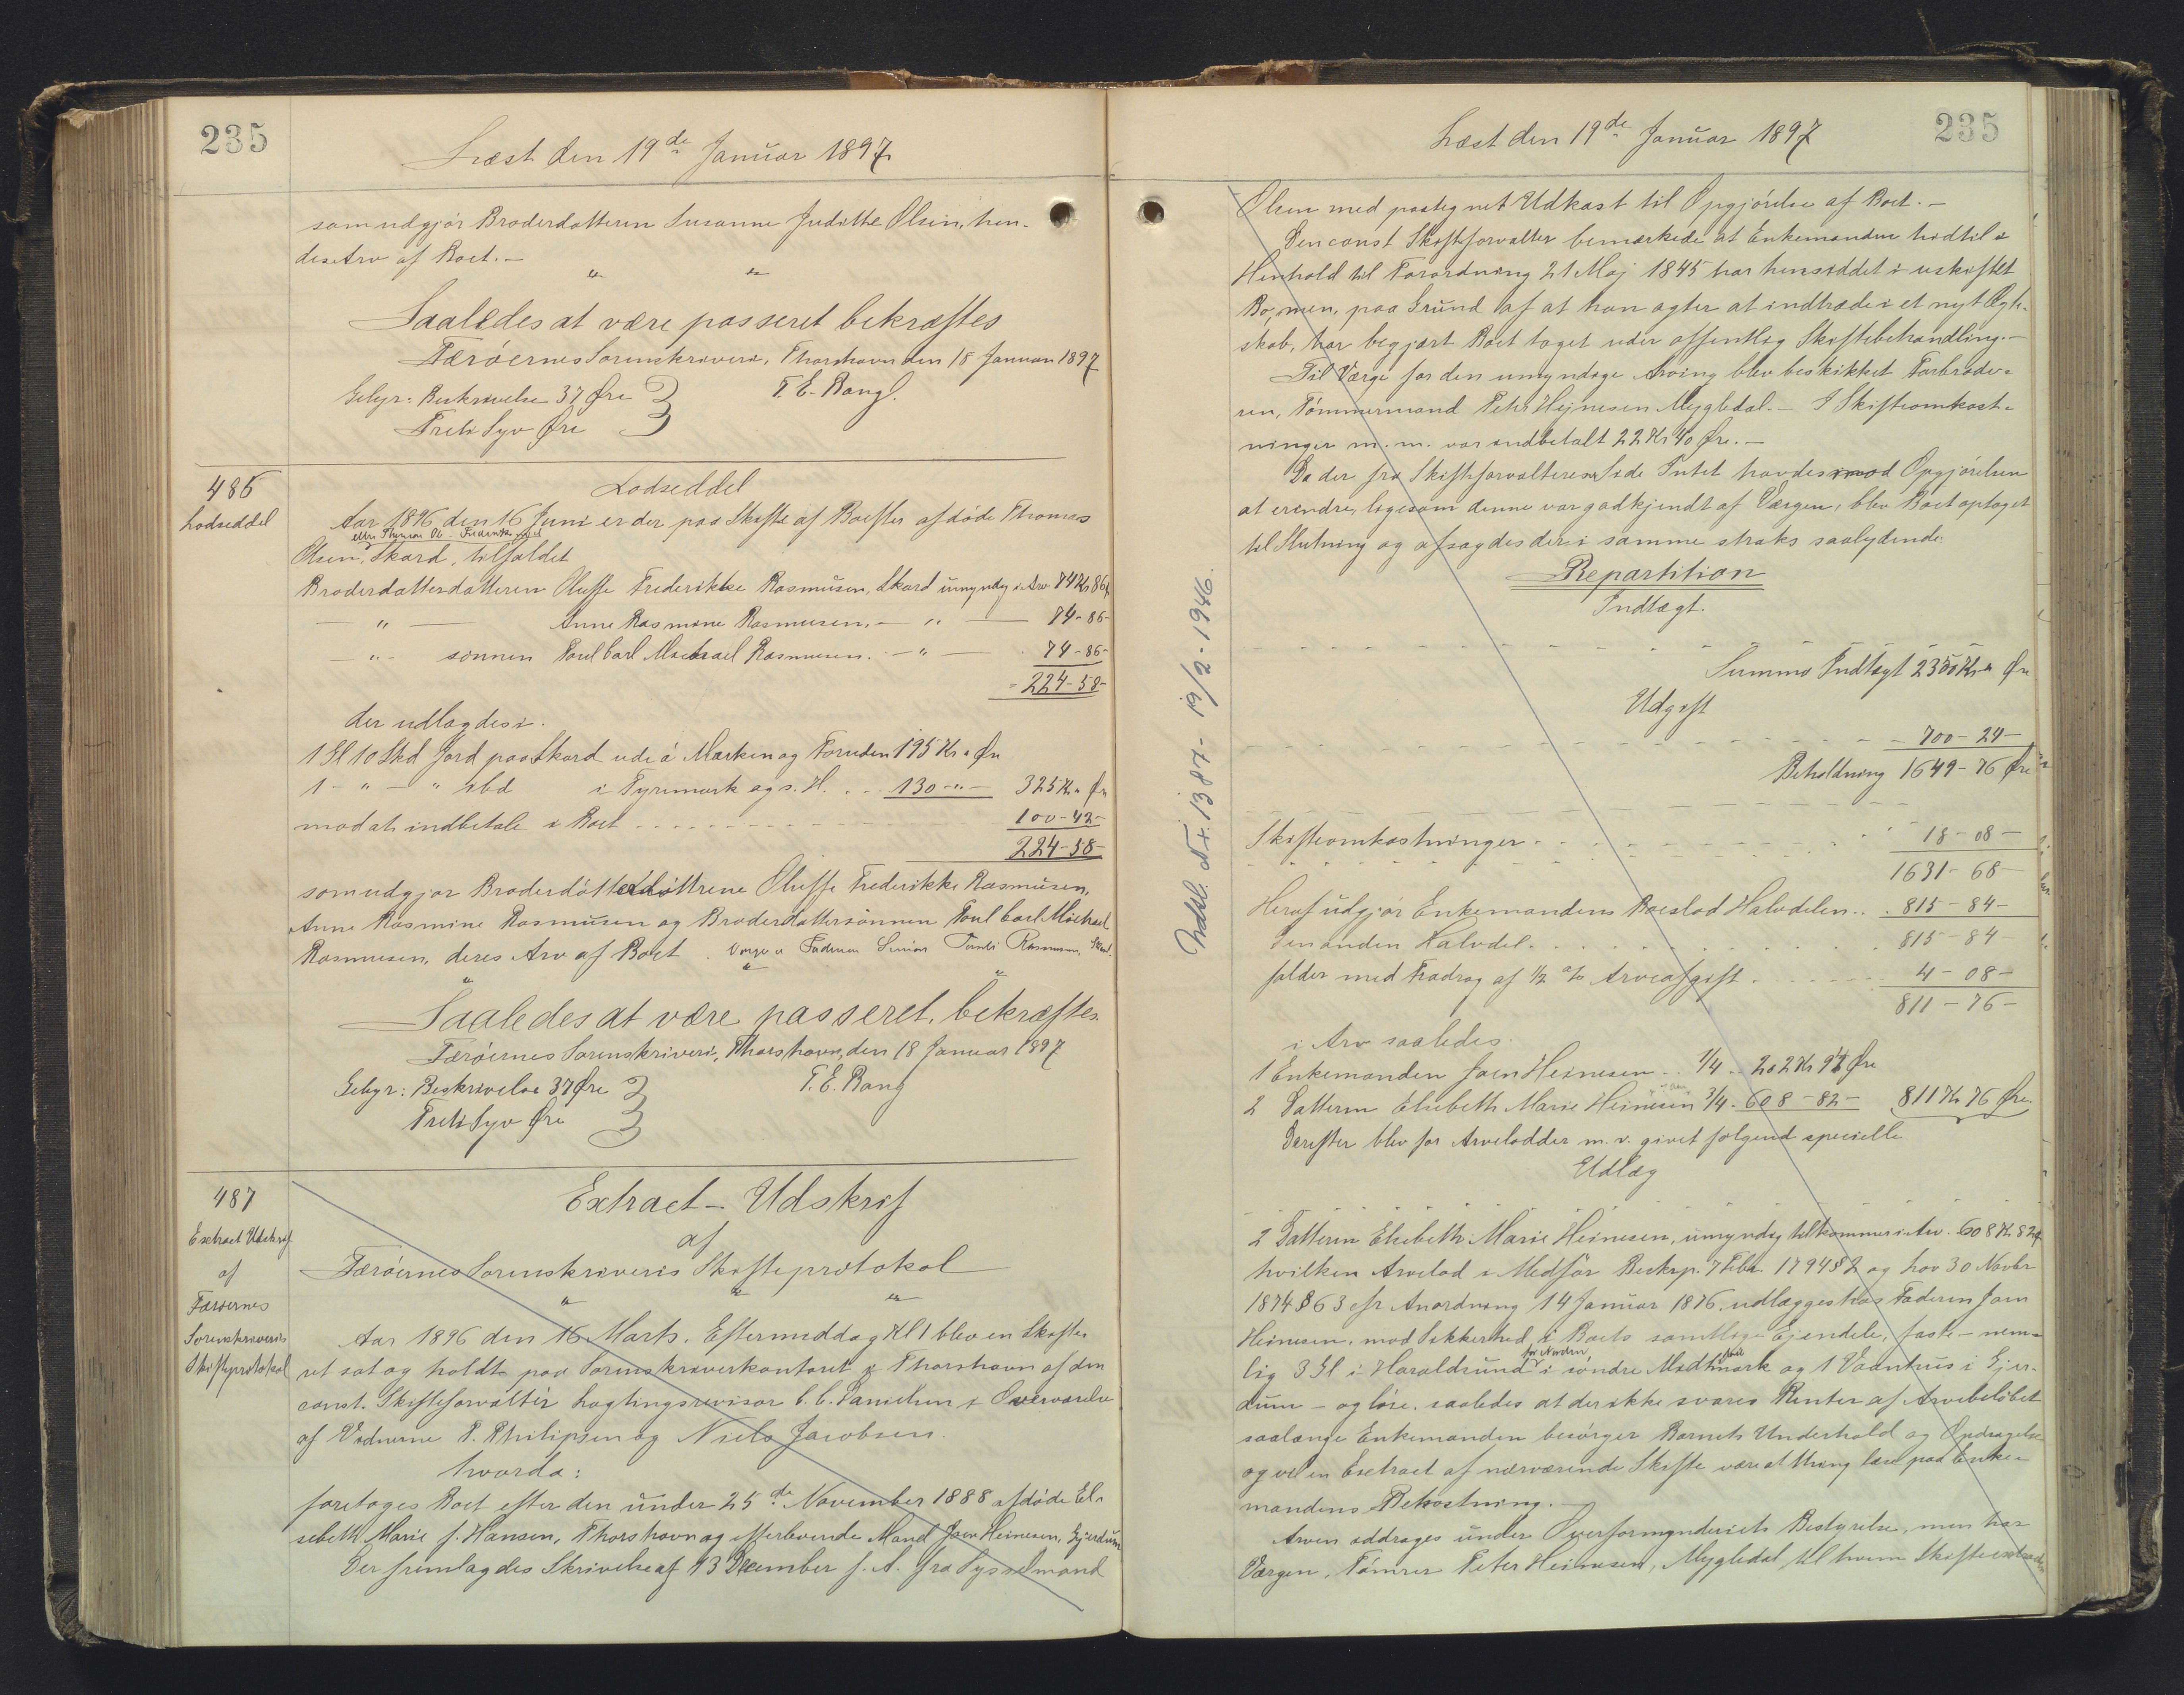 235
Læst den 19de Januar 1897.
som udgjør Broderdatteren Susanne Judithe Olsen, hen-
des Arv af Boet. —
" "
Saaledes at være passeret bekræftes
Færöernes Sorenskriveri, Thorshavn den 18 Januar 1897
Gebyr: Beskrivelse 37 Øre T. E. Bang.
Treti Syv Øre
486
Lodseddel
Lodseddel
Aar 1896 den 16 Juni er der paa Skifte af Boefter afdöde Thomas
Olsen, Skard, tilfaldet
Broderdatterdatteren Oluffe Frederikke Rasmusen, Skard umyndig i Arv 74 Kr 86
— " — Anne Rasmine Rasmusen, — " — 74-86-
— " — sønnen Poul Carl Michael Rasmusen. — " — 74-86-
224-58-
der udlagdes i.
1 Gl 10 Skd Jord paa Skard ude á Marken og Foruden 195 Kr " Øre
1 - " - " sbd i Tyrimark og s. H. . . 130 - " - 325 Kr " Øre
mod at indbetale i Boet . . . . . . 100-42-
224-58-
som udgjør Broderdötterdöttrene Oluffe Frederikke Rasmusen,
Anne Rasmine Rasmusen og Broderdattersönnen Poul Carl Michael
Rasmusen, deres Arv af Boet. Værge er Faderen Rasmusen, Skard.
" "
Saaledes at være passeret, bekræftes.
Færöernes Sorenskriveri, Thorshavn, den 18 Januar 1897
Gebyr: Beskrivelse 37 Øre T. E. Bang
Treti Syv Øre
487
Extract Udskrift
af
Færöernes
Sorenskriveris
Skifteprotokol
Extract-Udskrift
af
Færöernes Sorenskriveris Skifteprotokol
" " "
Aar 1896 den 16 Marts. Eftermiddag Kl 1 blev en Skifte-
ret sat og holdt paa Sorenskriverkontoret i Thorshavn af den
const. Skifteforvalter Lagtingsrevisor C. C. Danielsen i Overværelse
af Vidnerne P. Philipsen og Niels Jacobsen.
hvorda:
foretoges Boet efter den under 25de November 1888 afdöde El-
sebeth Marie f. Hansen, Thorshavn og efterlevende Mand Joen Heinesen, Gjerdum
Der fremlagdes Skrivelse af 13 December f. A. fra Sysselmand
Læst den 19de Januar 1897
235
Olsen med paategnet Udkast til Opgjörelse af Boet. —
Den const Skifteforvalter bemærkede at Enkemanden hidtil i
Henhold til Forordning 21 Maj 1845 har hensiddet i uskiftet
Bo, men, paa Grund af at han agter at indtræde i et nyt Ægte-
skab, har begjært Boet taget under offentlig Skiftebehandling. —
Til Værge for den umyndige Arving blev beskikket Farbrode-
ren, Tömmermand Peter Hejnesen Mygledal. — I Skifteomkost-
ninger m. m. var indbetalt 22 Kr 40 Øre. —
Da der fra Skifteforvalterens Side Intet havdes imod Opgjörelsen
at erindre, ligesom denne var godkjendt af Værgen, blev Boet optaget
til Slutning og afsagdes deri i samme straks saalydende:
Repartition
Indtægt.
Summa Indtægt 2350 Kr " Øre
Udgift
700-24-
Beholdning 1649-76 Øre
Skifteomkostninger . . . 18-08-
1631-68-
Heraf udgjør Enkemandens Boeslod Halvdelen . . 815-84-
Den anden Halvdel . . . 815-84-
falder med Fradrag af 1/2 % Arveafgift . . . 4-08-
811-76-
i Arv saaledes.
1 Enkemanden Joen Heinesen . . 1/4 . . 202 Kr 94 Øre
2 Datteren Elsebeth Marie Heinesen 3/4 - 608-82- 811 Kr 76 Øre
Derefter blev for Arvelodder m. v. givet følgend specielle
Udlæg
2 Datteren Elsebeth Marie Heinesen, umyndig tilkommer i Arv. 608 Kr 82
hvilken Arvelod i Medför Beskrp. 7 Febr. 1794 § 2 og Lov 30 Novbr
1874 § 63 cfr Anordning 14 Januar 1876 udlægges hos Faderen Joen
Heinesen, mod Sikkerhed i Boets samtlige Ejendele, faste — nem-
lig 3 Gl i Haraldsund for Norden i söndre Midthmark og 1 Vaanhus i Gjer-
dum — og löse, saaledes at der ikke svares Renter af Arvebelöbet
saalænge Enkemanden besörger Barnets Underhold og Opdragelse
og vil en Extract af nærværende Skifte være at thinglæse paa Enke-
mandens Bekostning. —
Arven inddrages under Overformynderiets Bestyrelse, men hos
Værgen, Tömrer Peter Heinesen, Mygledal til hvem Skifteextract
Indsl. Nr. 1387 - 19/2 - 1946.